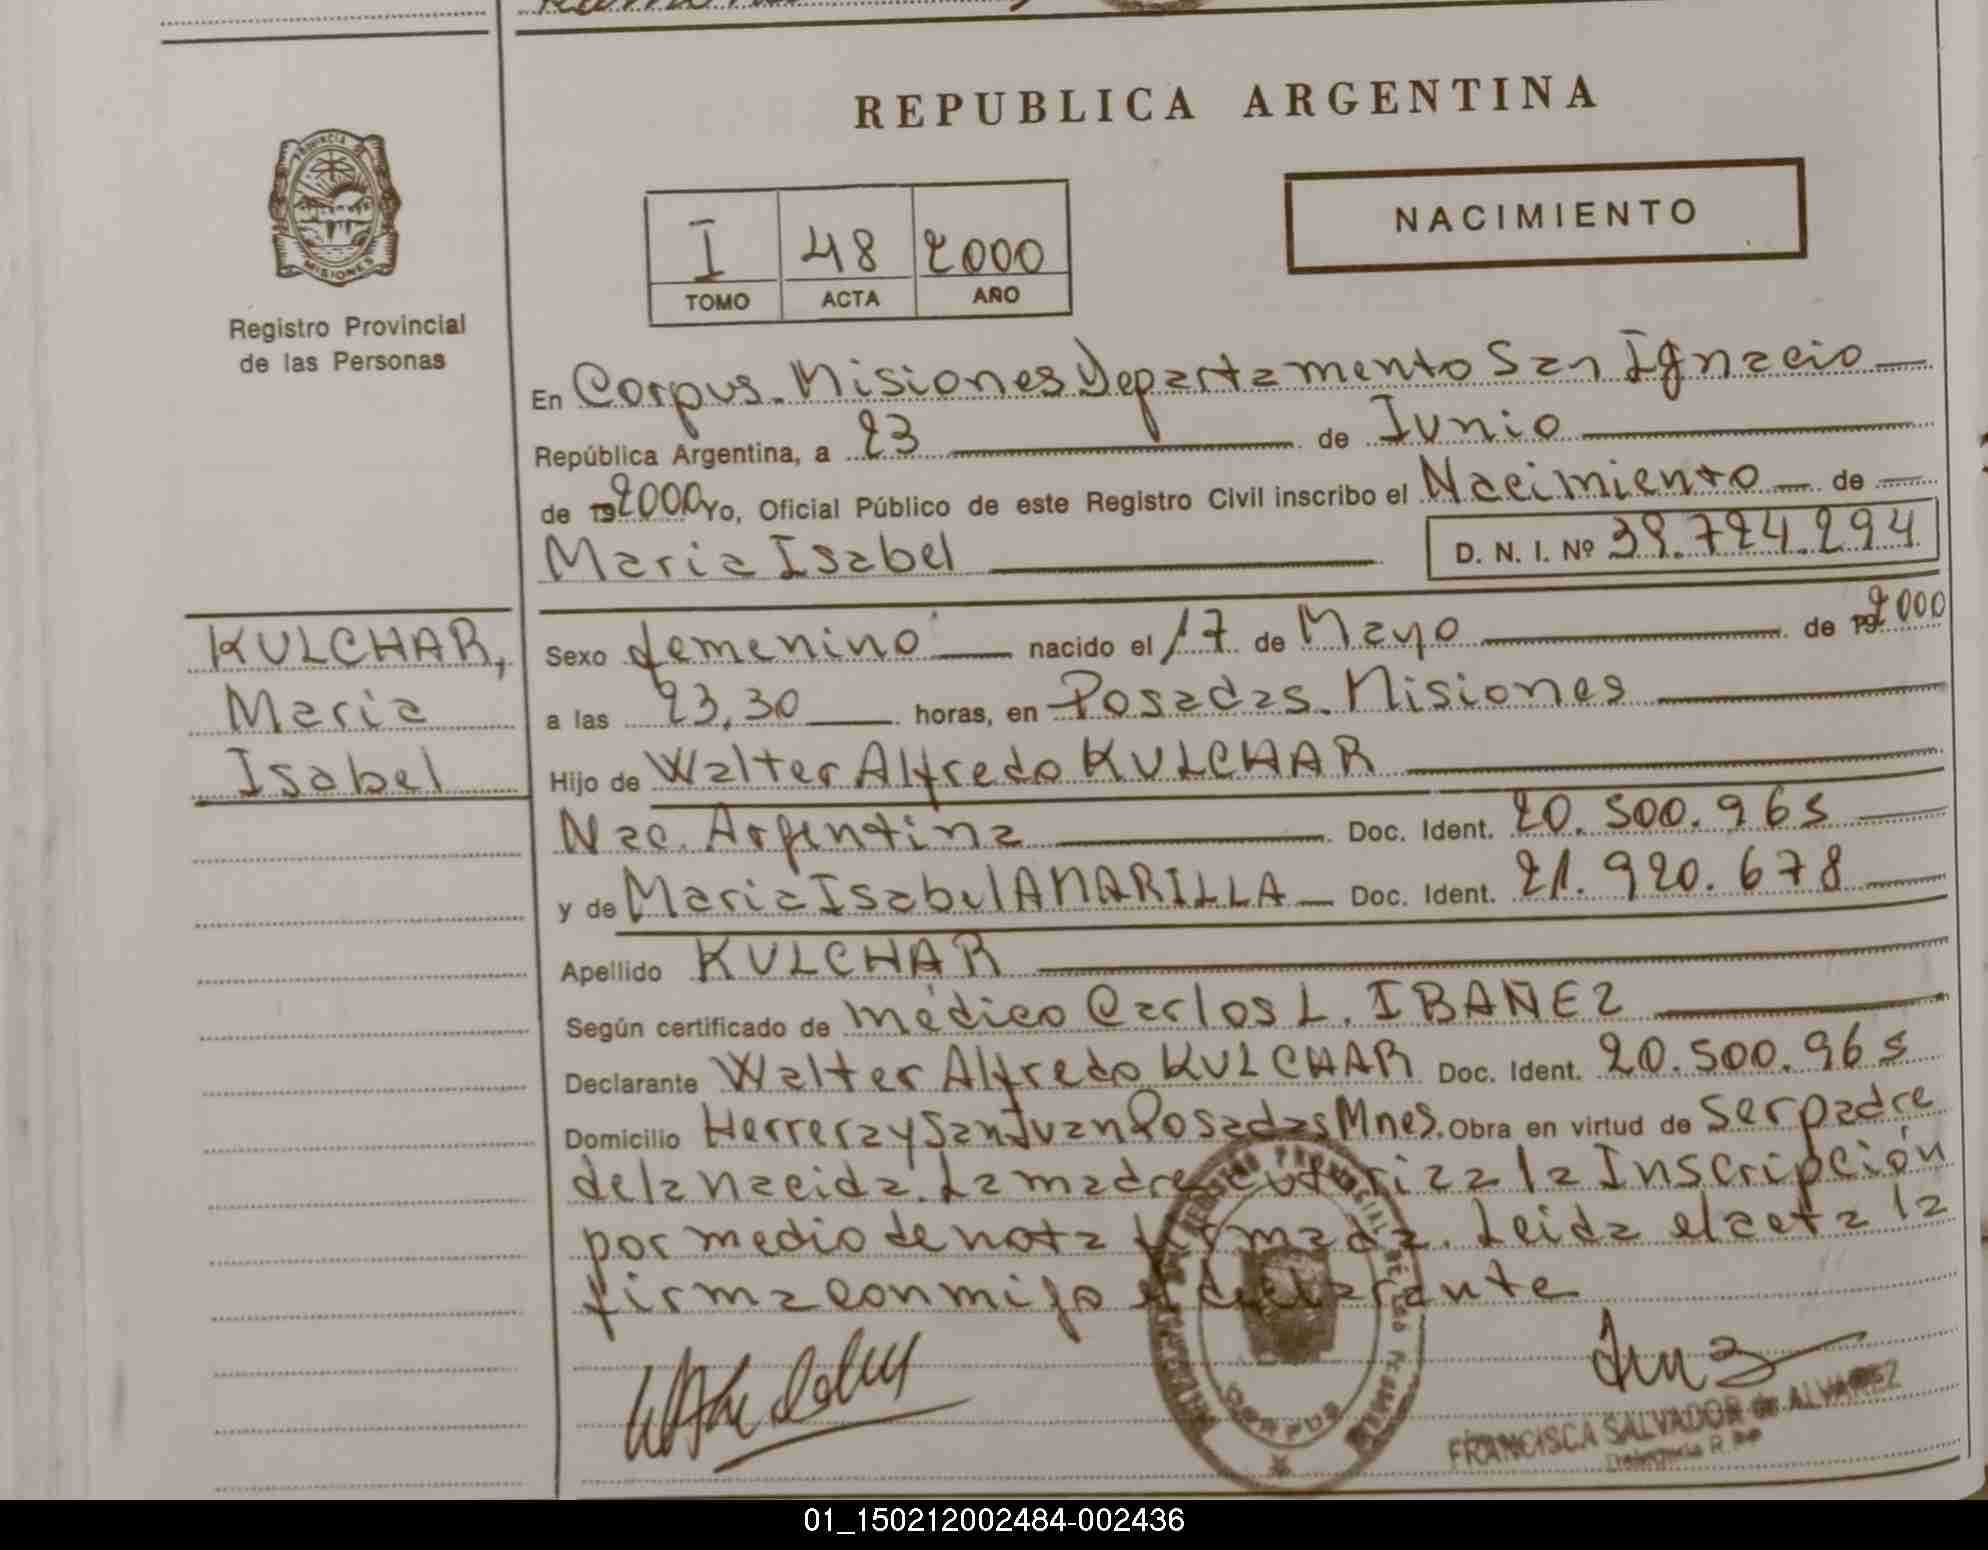 REPUBLICA ARGENTINA
NACIMIENTO
PROVINCIA DE
MISIONES
Registro Provincial
de las Personas
I 48 2000
TOMO ACTA AÑO
En Corpus. Misiones Departamento San Ignacio
República Argentina, a 23 de Junio
de 192000 Yo, Oficial Público de este Registro Civil inscribo el Nacimiento de
Maria Isabel D. N. I. Nº 39.724.294
KULCHAR,
Maria
Isabel
Sexo femenino nacido el 17 de Mayo de 192000
a las 23,30 horas, en Posadas. Misiones
Hijo de Walter Alfredo KULCHAR
Nac. Argentina Doc. Ident. 20.500.965
y de Maria Isabel AMARILLA Doc. Ident. 21.920.678
Apellido KULCHAR
Según certificado de médico Carlos L. IBAÑEZ
Declarante Walter Alfredo KULCHAR Doc. Ident. 20.500.965
Domicilio Herrera y San Juan Posadas Mnes. Obra en virtud de ser padre
de la nacida. La madre autoriza la Inscripción
por medio de nota firmada. Leida el acta la
firma conmigo el declarante
FRANCISCA SALVADOR de ALVAREZ
CORPUS
01_150212002484-002436